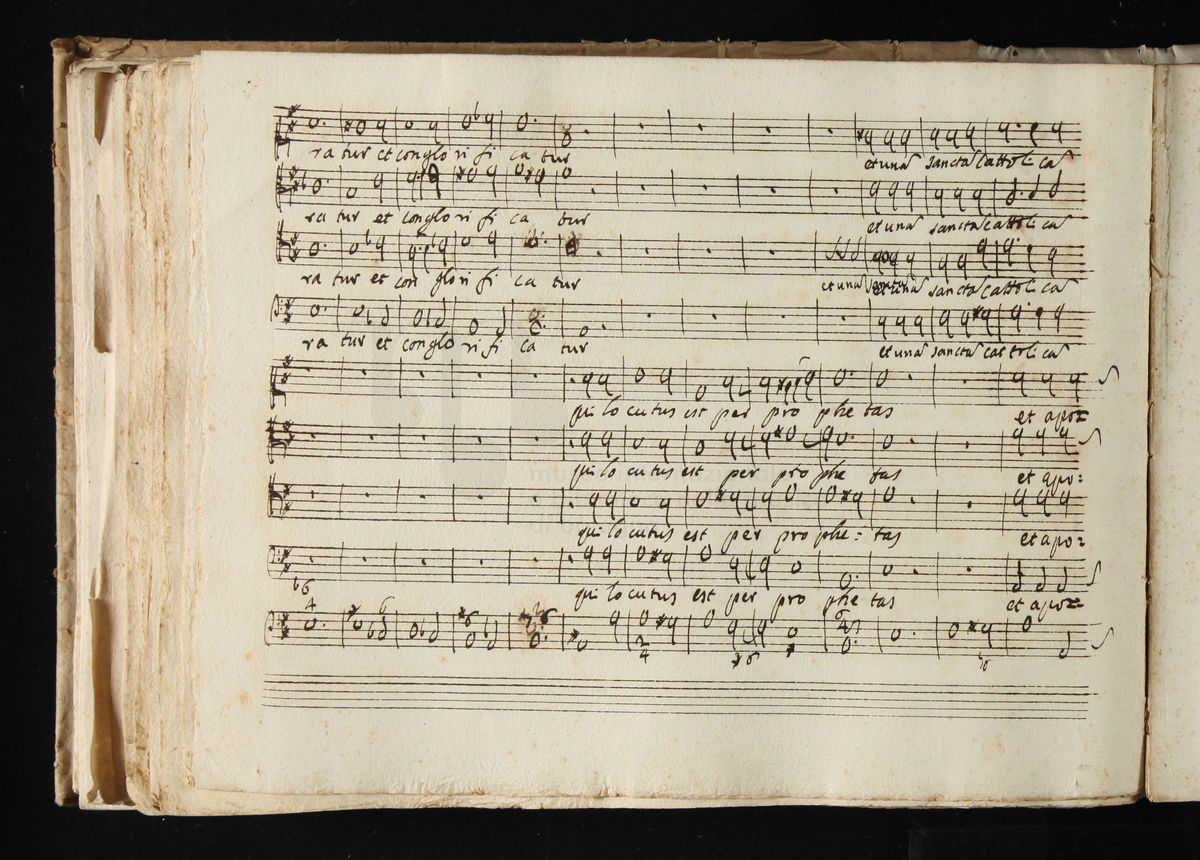 ra tur et conglo ri fi ca tur et una sancta Cattoli ca
ra tur et conglo ri fi ca tur et una sancta Cattoli ca
ra tur et con glo ri fi ca tur et una et una sancta Cattoli ca
ra tur et conglo ri fi ca tur et una sancta Cattoli ca
qui lo cutus est per pro phe tas et apo=
qui lo cutus est per pro phe tas et apo:
qui lo cutus est per pro phe: tas et apo=
qui lo cutus est per pro phe tas et apo=